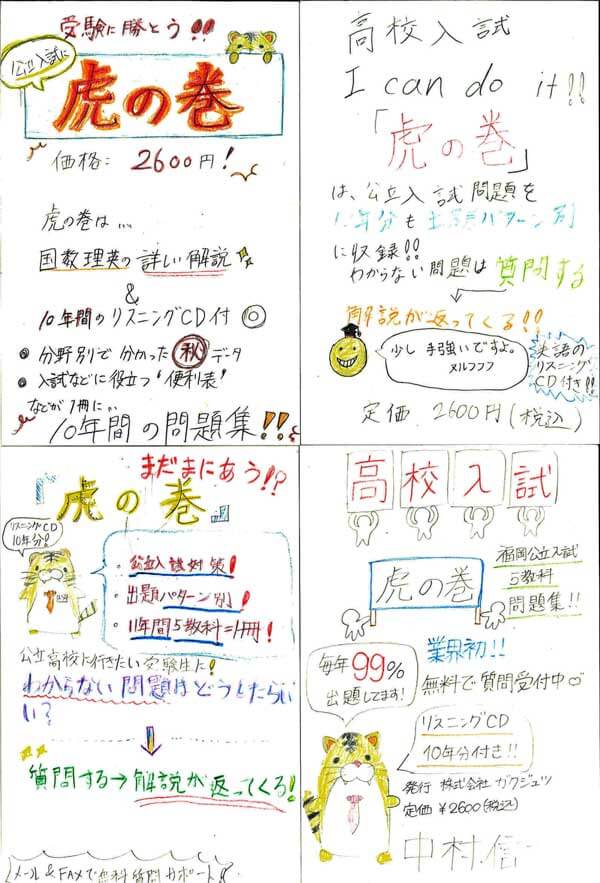 受験に勝とう!!
公立入試に
虎の巻
価格: 2600円!
虎の巻は…
国数理英の詳しい解説
&
10年間のリスニングCD付◎
● 分野別で分かった秋データ
● 入試などに役立つ"便利表"
などが1冊に..
10年間の問題集!!
高校入試
I can do it!!
「虎の巻」
は、公立入試問題を
年分も出題パターン別
に収録!!
わからない問題は質問する
解説が返ってくる!!
少し手強いですよ。
メルフフフ
英語の
リスニング
CD付き!!
定価 2600円(税込)
まだまにあう!?
『虎の巻』
リスニングCD
10年分!
・公立入試対策!
・出題パターン別!
・11年間5教科=1冊!
公立高校に行きたい受験生に!
わからない問題はどうしたらいい
い?
質問する→解説が返ってくる!
メール&FAXで無料質問サポート
高校入試
虎の巻
福岡公立入試
5教科
問題集!!
業界初!!
無料で質問受付中
毎年99%
出題してます!
リスニングCD
10年分付き!!
発行 株式会社ガクジュツ
定価 ¥2600(税込)
中村信一